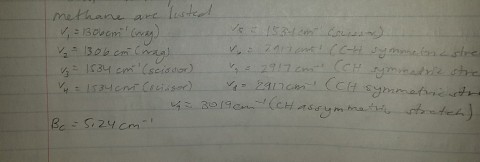 methane are listed
ν1 = 1306 cm⁻¹ (wag) ν5 = 1534 cm⁻¹ (scissor)
ν2 = 1306 cm⁻¹ (wag) 2917 cm⁻¹ (CH symmetric stre
ν3 = 1534 cm⁻¹ (scissor) 2917 cm⁻¹ (CH symmetric stre
ν4 = 1534 cm⁻¹ (scissor) ν8 = 2917 cm⁻¹ (CH symmetric stre
ν9 = 3019 cm⁻¹ (CH assymmetric stretch)
Bc = 5.24 cm⁻¹